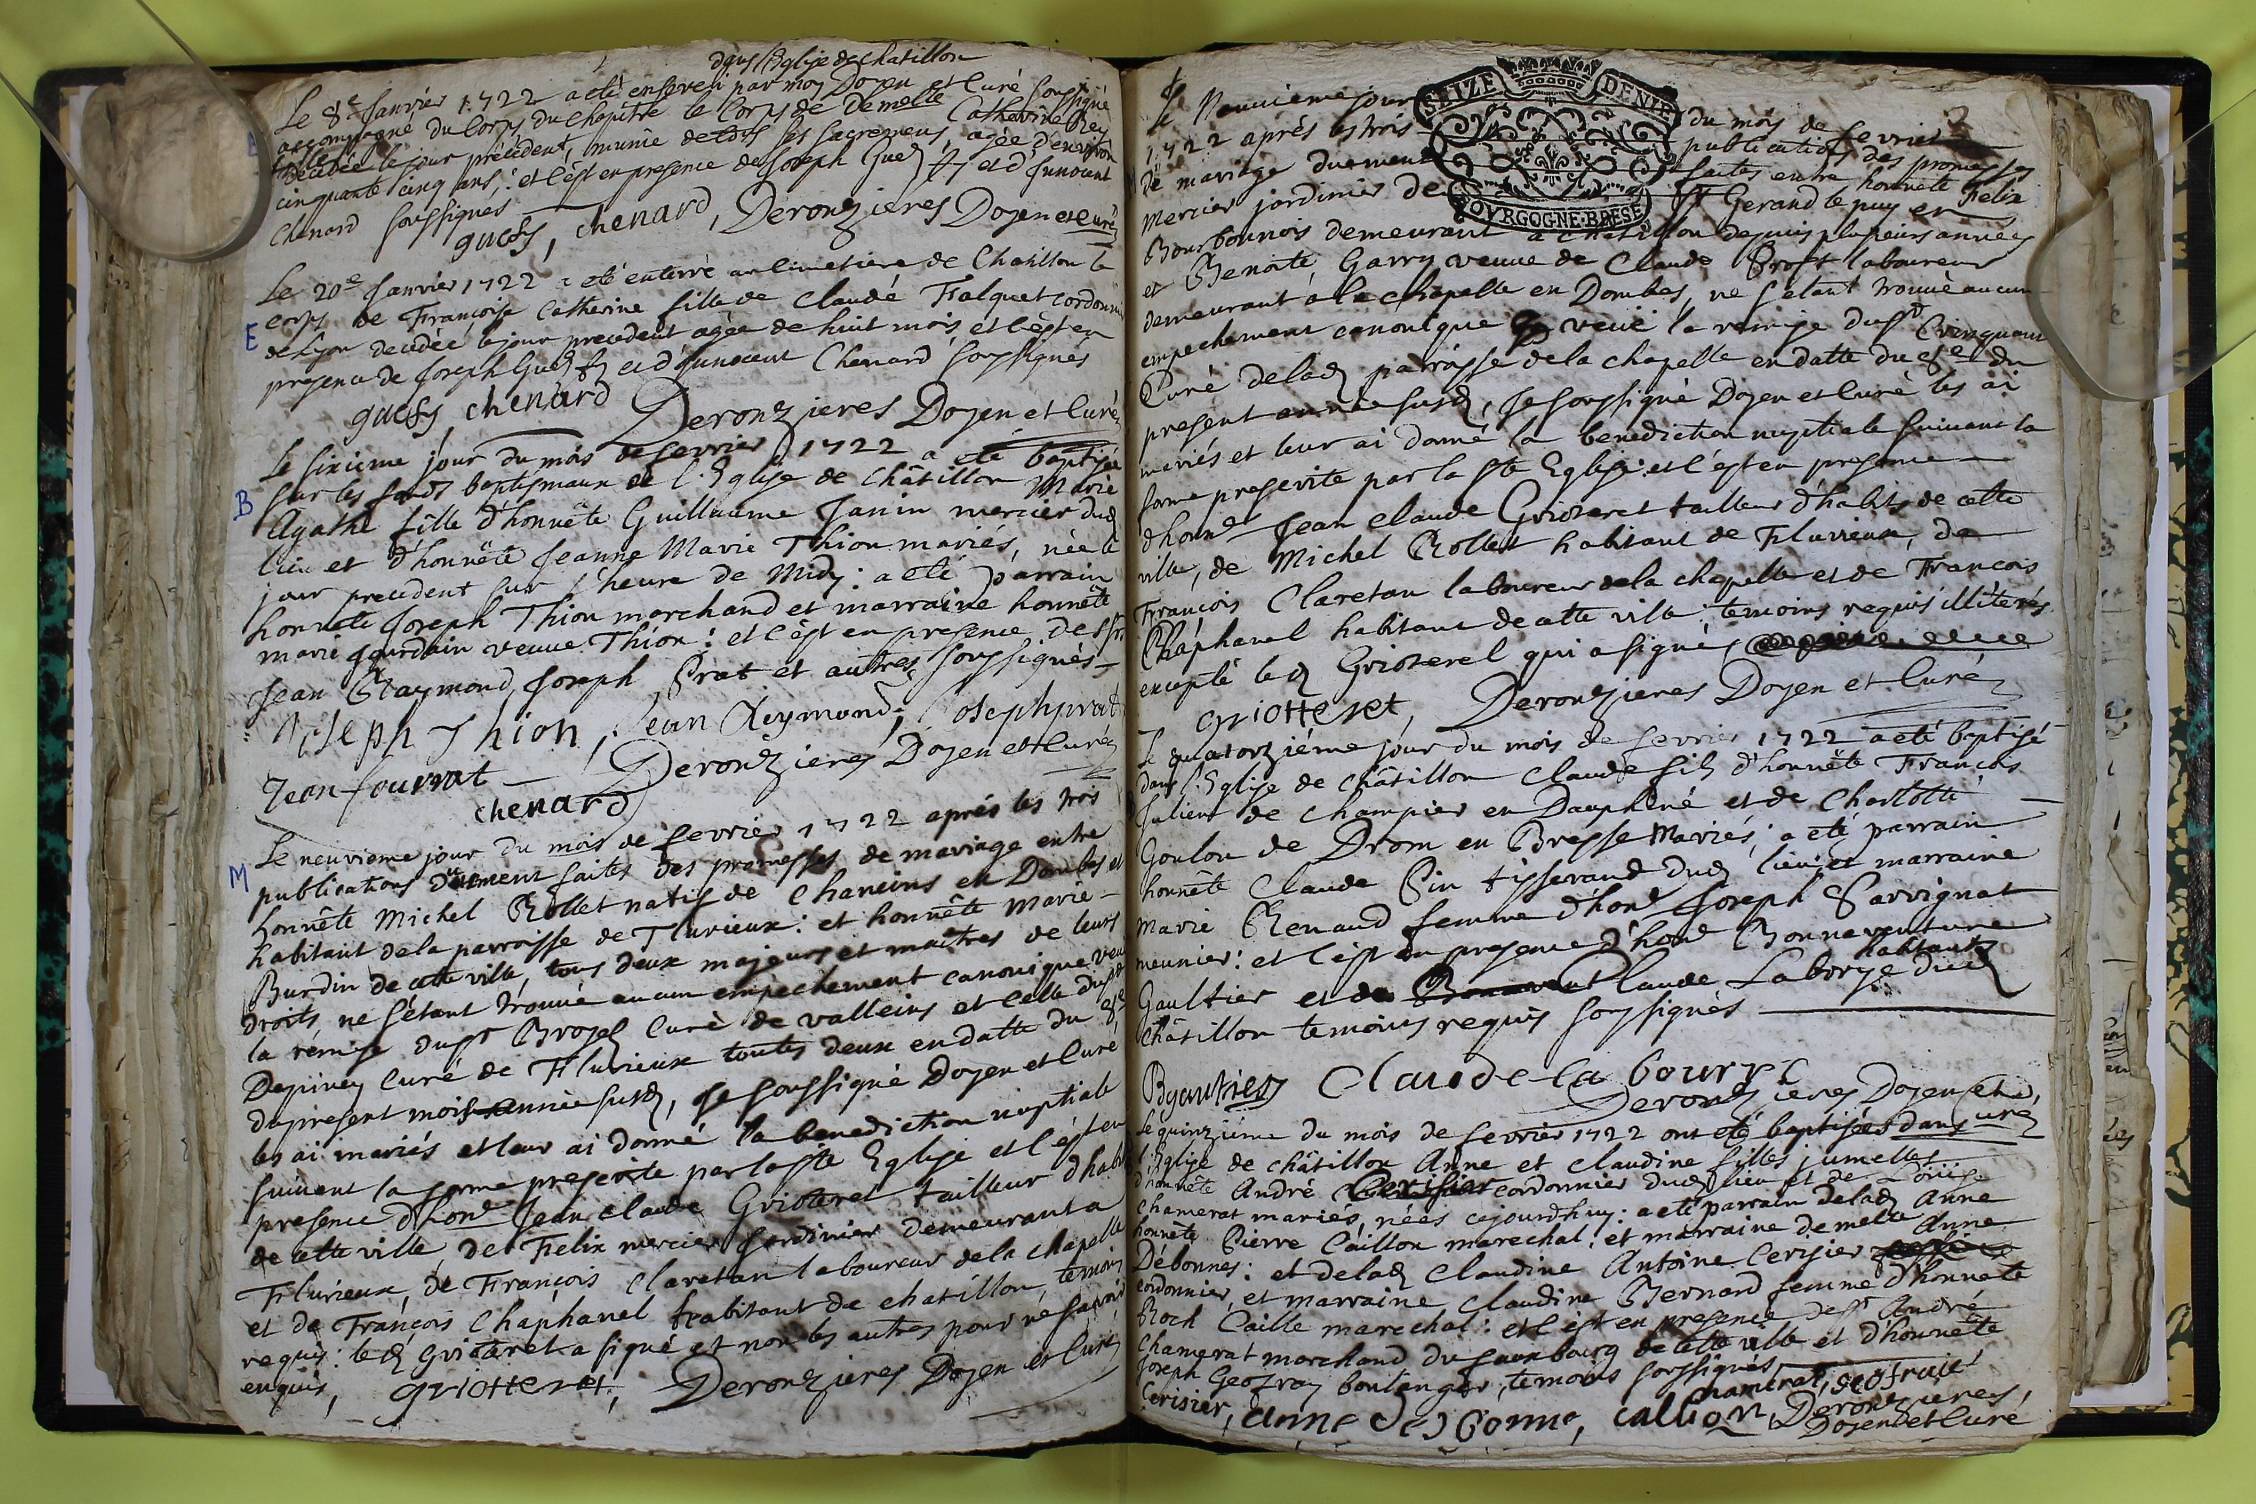 dans l'Eglise de chatillon
Le 8e Janvier 1722 a eté enseveli par moy Doyen et Curé soussigné
accompagné du Corps du Chapitre le Corps de Demelle Catherine Rey
decedée le jour précédent, munie de tous ses sacremens agée d'environ
cinquante cinq ans; et c'est en presence de Joseph Guedf et d'Innocent
Chenard soussignés
guedf, chenard, Deronzieres Doyen et curé
E
Le 20e Janvier 1722 a eté enterré au Cimetiere de Chatillon le
corps de Françoise Catherine fille de Claude Falquet cordonnier
de Lyon decedée le jour precedent agée de huit mois, et c'est en
presence de Joseph Guedf et d'Innocent Chenard soussignés
guedf chenard Deronzieres Doyen et Curé
B
Le sixieme jour du mois de fevrier 1722 a eté baptisée
sur les fonds baptismaux de l'Eglise de Châtillon Marie
Agathe fille d'honnête Guillaume Janin mercier dud
lieu et d'honnête Jeanne Marie Thion mariés, née le
jour precedent sur l'heure de Midy: a eté parrain
honnête Joseph Thion marchand et marraine honnête
marie Jourdain veuve Thion: et c'est en presence de srs
Jean Raymond, Joseph Prat et autres soussignés
Joseph Thion, Jean Reymond, Joseph prat
Jean fourrat Deronzieres Doyen et Curé
chenard
M
Le neuvieme jour du mois de fevrier 1722 aprés les trois
publications düement faites des promesses de mariage entre
honnête Michel Rollet natif de Chaneins en Dombes et
habitant de la parroisse de Flurieux: et honnête Marie
Burdin de cette ville, tous deux majeurs et maîtres de leurs
droits, ne s'étant trouvé aucun empêchement canonique veu
la remise du sr Brossel Curé de valleins et celle du sr
Depiney Curé de Flurieux toutes deux en datte du 8e
du present mois année susd, Je soussigné Doyen et Curé
les ai mariés et leur ai donné la benediction nuptiale
suivant la forme prescrite par la ste Eglise et c'est en
presence d'hone Jean Claude Grioteret tailleur d'habit
de cette ville de Felix mercier Jardinier demeurant a
Flurieux, de François Claretan laboureur de la chapelle
et de François Chaphanel habitant de chatillon, temoins
requis: led Grioteret a signé et non les autres pour ne savoir
enquis, griotteret, Deronzieres Doyen et Curé
SEIZE DENIE
BOVRGOGNE·BRESE
Le Neuvieme jour du mois de fevrier
1722 aprés les trois publications des promesses
de mariage duement faites entre honnête Felix
Mercier jardinier de St Gerand le puy en
Bourbonnois demeurant a Chatillon depuis plusieurs années
et Benoite Garry veuve de Claude Prost laboureur
demeurant a la chapelle en Dombes, ne s'etant trouvé aucun
empechement canonique veüe la remise du sr Cinquant
Curé de lad parroisse de la chapelle en datte du 8e du
present année susd, Je soussigné Doyen et Curé les ai
mariés et leur ai donné la benediction nuptiale suivant la
forme prescrite par la ste Eglise: et c'est en presence
d'hone Jean Claude Grioteret tailleur d'habits de cette
ville, de Michel Rollet habitant de Flurieux, de
François Claretan laboureur de la chapelle et de François
Chaphanel habitant de cette ville temoins requis illiterés
excepté led Grioterel qui a signé
griotteret, Deronzieres Doyen et Curé
Le quatorziéme jour du mois de fevrier 1722 a eté baptisé
dans l'Eglise de châtillon Claude fils d'honnête François
Julien de Champier en Dauphiné et de Charlotte
Goulon de Drom en Bresse Mariés; a eté parrain
honnête Claude Pin tisserand dud lieu et marraine
Marie Renaud femme d'hone Joseph Sarvignat
meunier: et c'est en presence d'hone Bonnaventure
Gaultier et de Claude Laborye habitants dud
Châtillon temoins requis soussignés
Bgautier Claude la bourys
Deronzieres Doyen et Curé
Le quinziéme du mois de fevrier 1722 ont eté baptisées dans
l'Eglise de châtillon Anne et Claudine filles jumelles
d'honnête André Cerisier cordonnier dud lieu et de Loüise
Chamerat mariés, nées cejourdhuy: a eté parrain de lad Anne
honnête Pierre Caillon marechal: et marraine demelle Anne
Débonnes: et de lad Claudine Antoine Cerisier
cordonnier, et marraine Claudine Bernard femme d'honnête
Roch Caille marechal: et c'est en presence de sr André
Chamerat marchand du fauxbourg de cette ville et d'honnête
Joseph Geofray boulanger, temoins soussignés
Cerisier, anne desbonne, callion, chamerat, Jeofraie
Deronzieres, Doyen et Curé